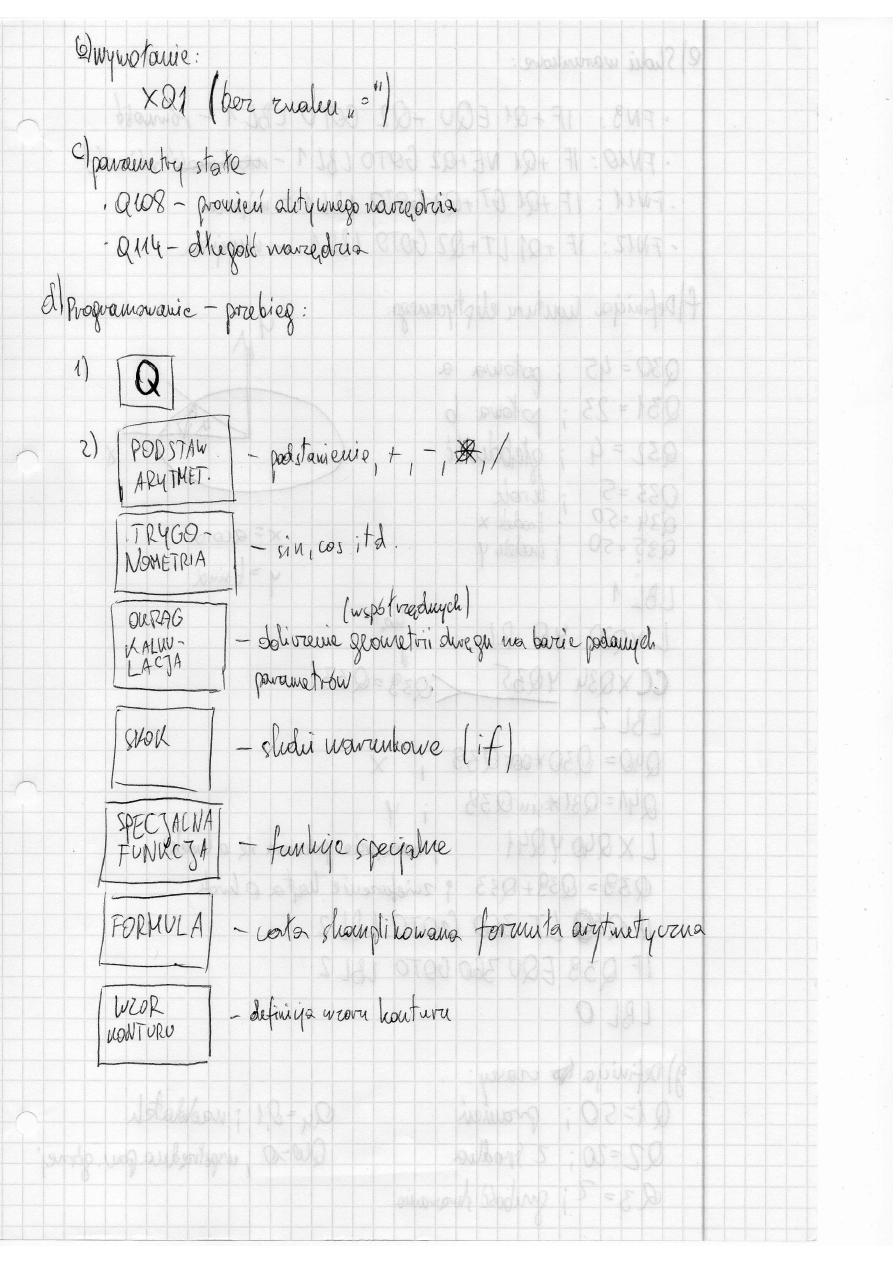 b) wywołanie:
XQ1 (bez znaku „=")
c) parametry stałe
· Q108 – promień aktywnego narzędzia
· Q114 – długość narzędzia
d) Programowanie – przebieg:
1) Q
2) PODSTAW. ARYTMET. – podstawienie, +, -, *, /
TRYGO-
NOMETRIA – sin, cos itd.
(współrzędnych)
OKRĄG
KALKU-
LACJA – obliczenie geometrii okręgu na bazie podanych
parametrów
SKOK – skoki warunkowe (if)
SPECJALNA
FUNKCJA – funkcje specjalne
FORMUŁA – cała skomplikowana formuła arytmetyczna
WZOR
KONTURU – definicja wzoru konturu